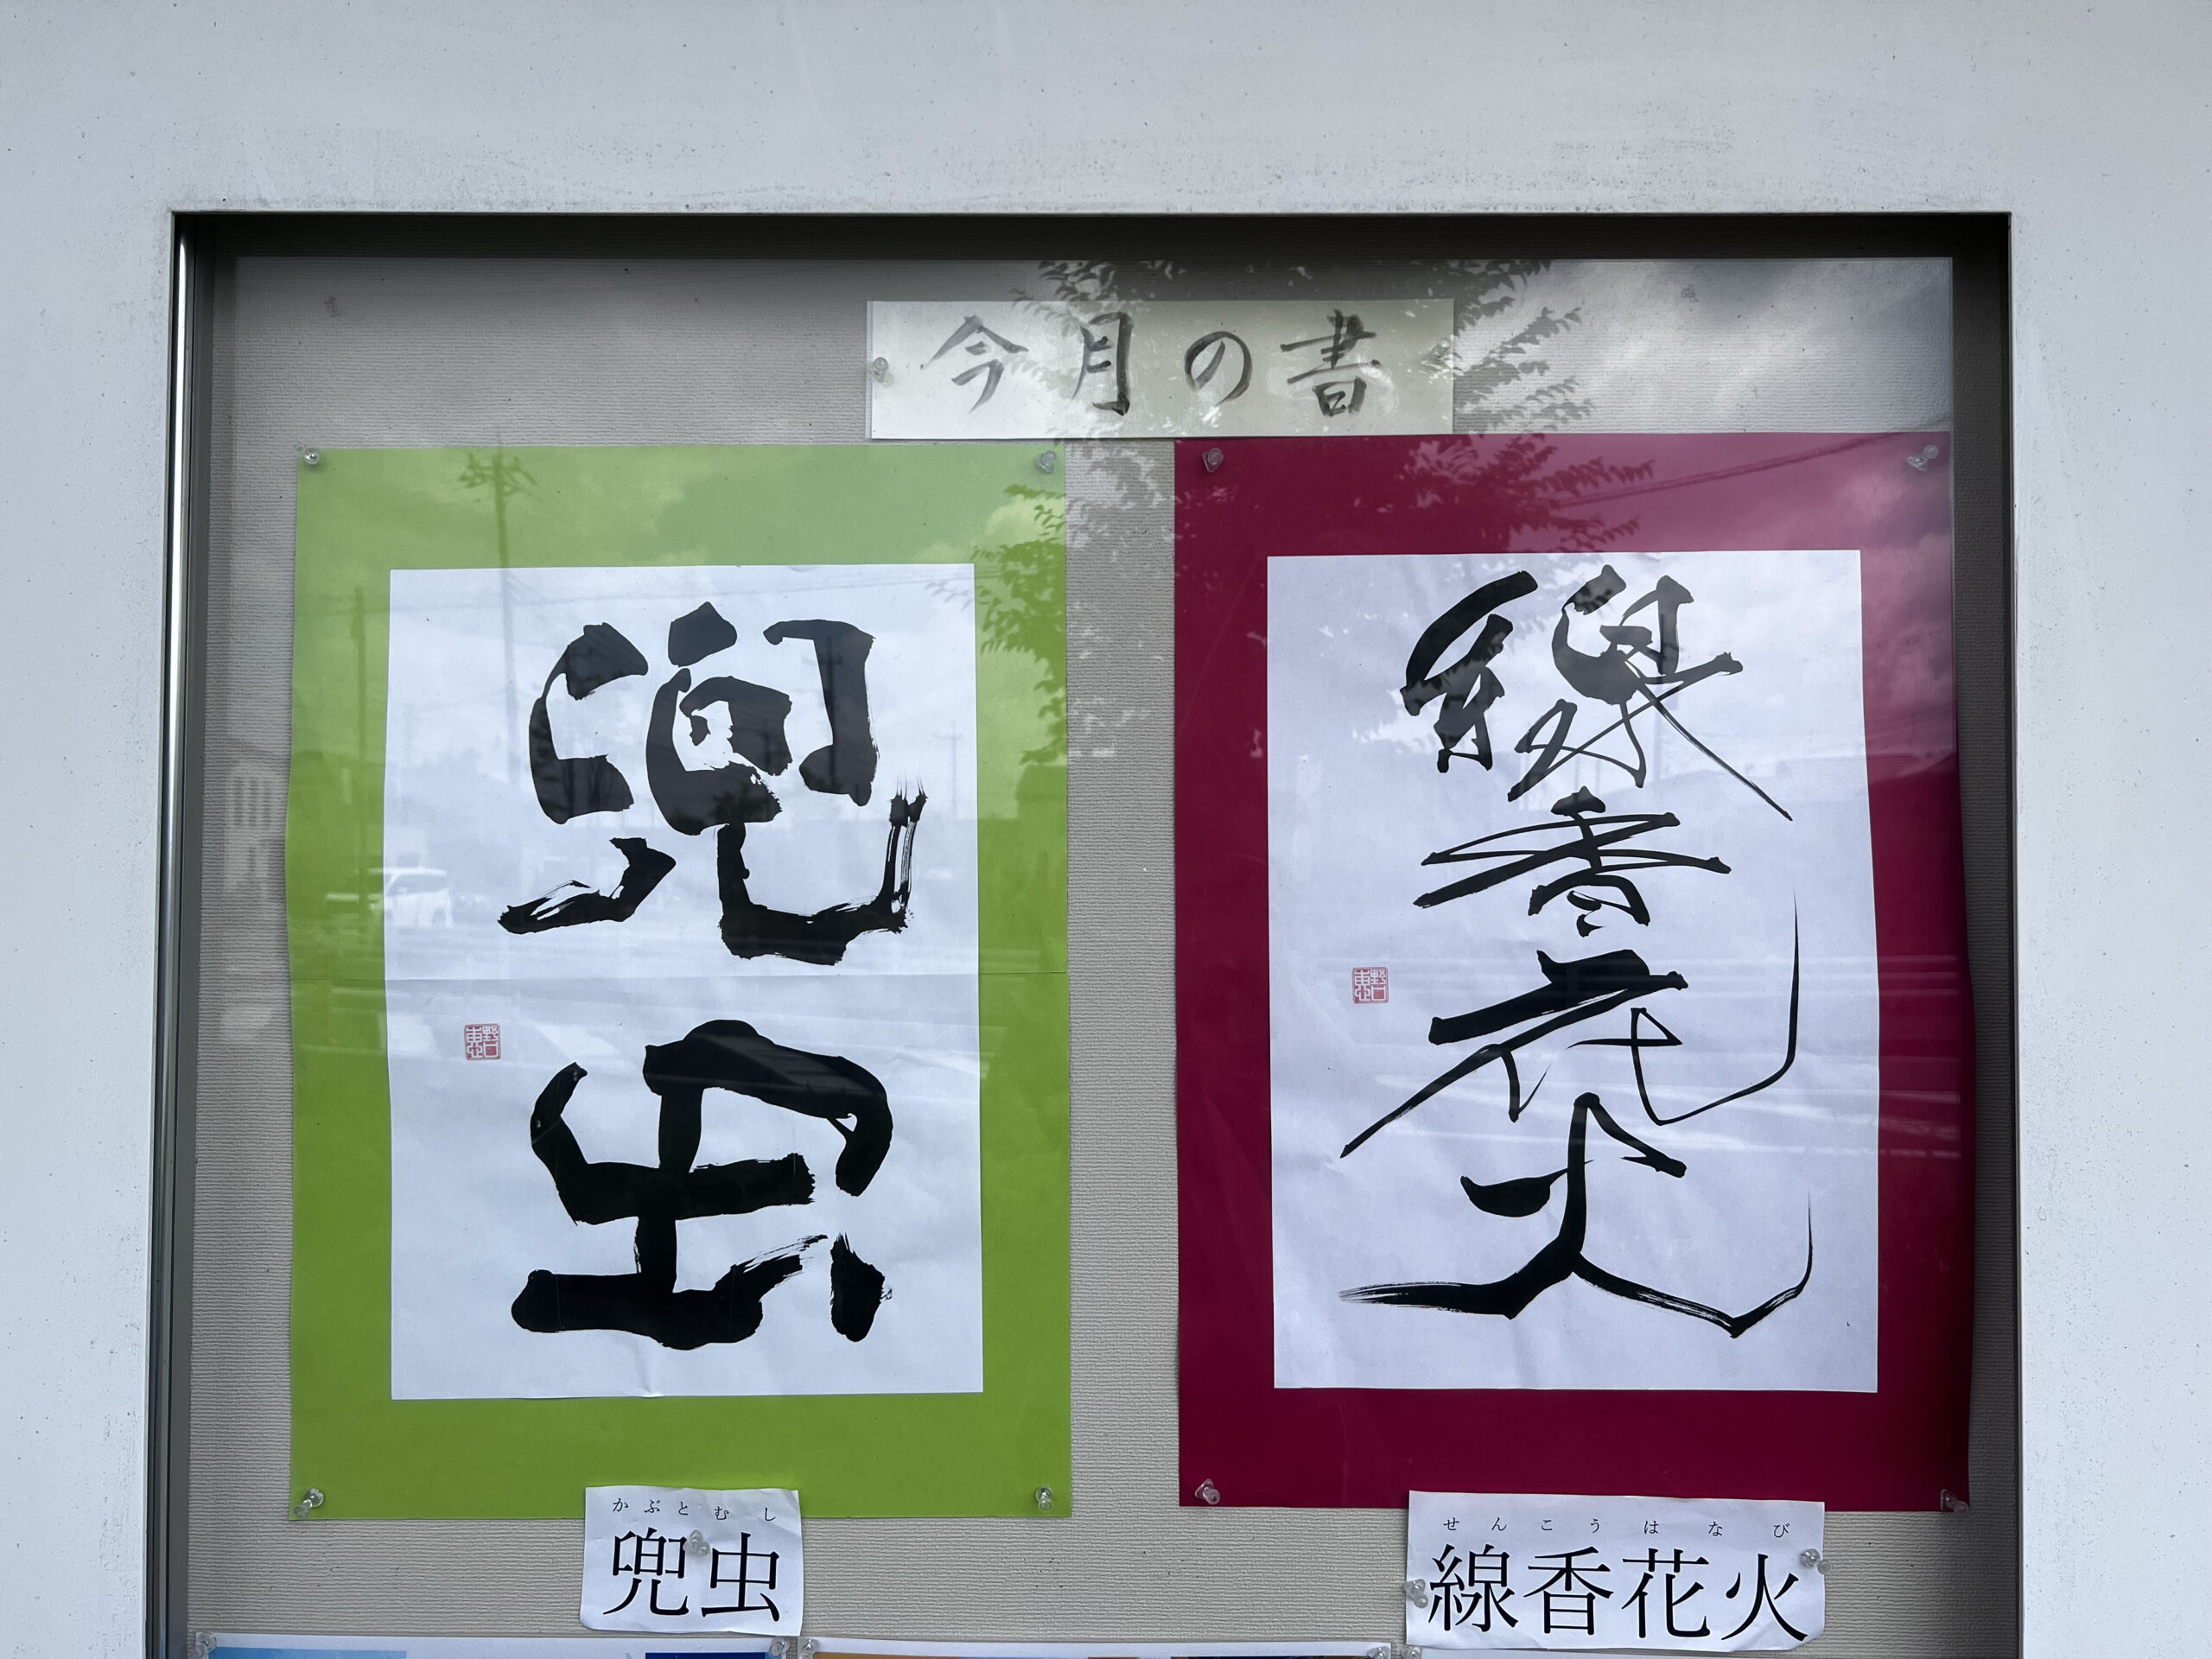 今月の書
兜虫
線香花火
かぶとむし
兜虫
せんこうはなび
線香花火